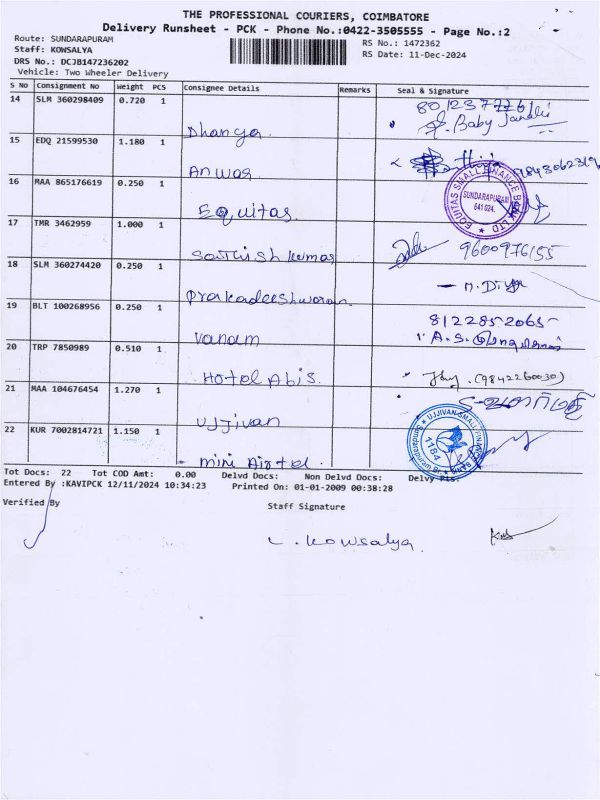 THE PROFESSIONAL COURIERS, COIMBATORE
Delivery Runsheet - PCK - Phone No.:0422-3505555 - Page No.:2
Route: SUNDARAPURAM
RS No.: 1472362
Staff: KOWSALYA
RS Date: 11-Dec-2024
DRS No.: DCJB147236202
Vehicle: Two Wheeler Delivery
S No Consignment No Weight PCS Consignee Details Remarks Seal & Signature
14 SLM 360298409 0.720 1 Dhanya Baby
15 EDQ 21599530 1.180 1 Anwar
16 MAA 865176619 0.250 1 Equitas
EQUITAS SMALL FINANCE BANK LTD
SUNDARAPURAM
641 024.
17 TMR 3462959 1.000 1 Sathish kumar 9600976155
18 SLM 360274420 0.250 1 Prakadeeshwaran
19 BLT 100268956 0.250 1 Vanam 8122852065
20 TRP 7850989 0.510 1 Hotel Abis. (9842260030)
21 MAA 104676454 1.270 1 Ujjivan
UJJIVAN SMALL FINANCE BANK
1184
22 KUR 7002814721 1.150 1 mini Airtel.
Tot Docs: 22 Tot COD Amt: 0.00 Delvd Docs: Non Delvd Docs: Delvy Pts:
Entered By :KAVIPCK 12/11/2024 10:34:23 Printed On: 01-01-2009 00:38:28
Verified By
Staff Signature
Kowsalya